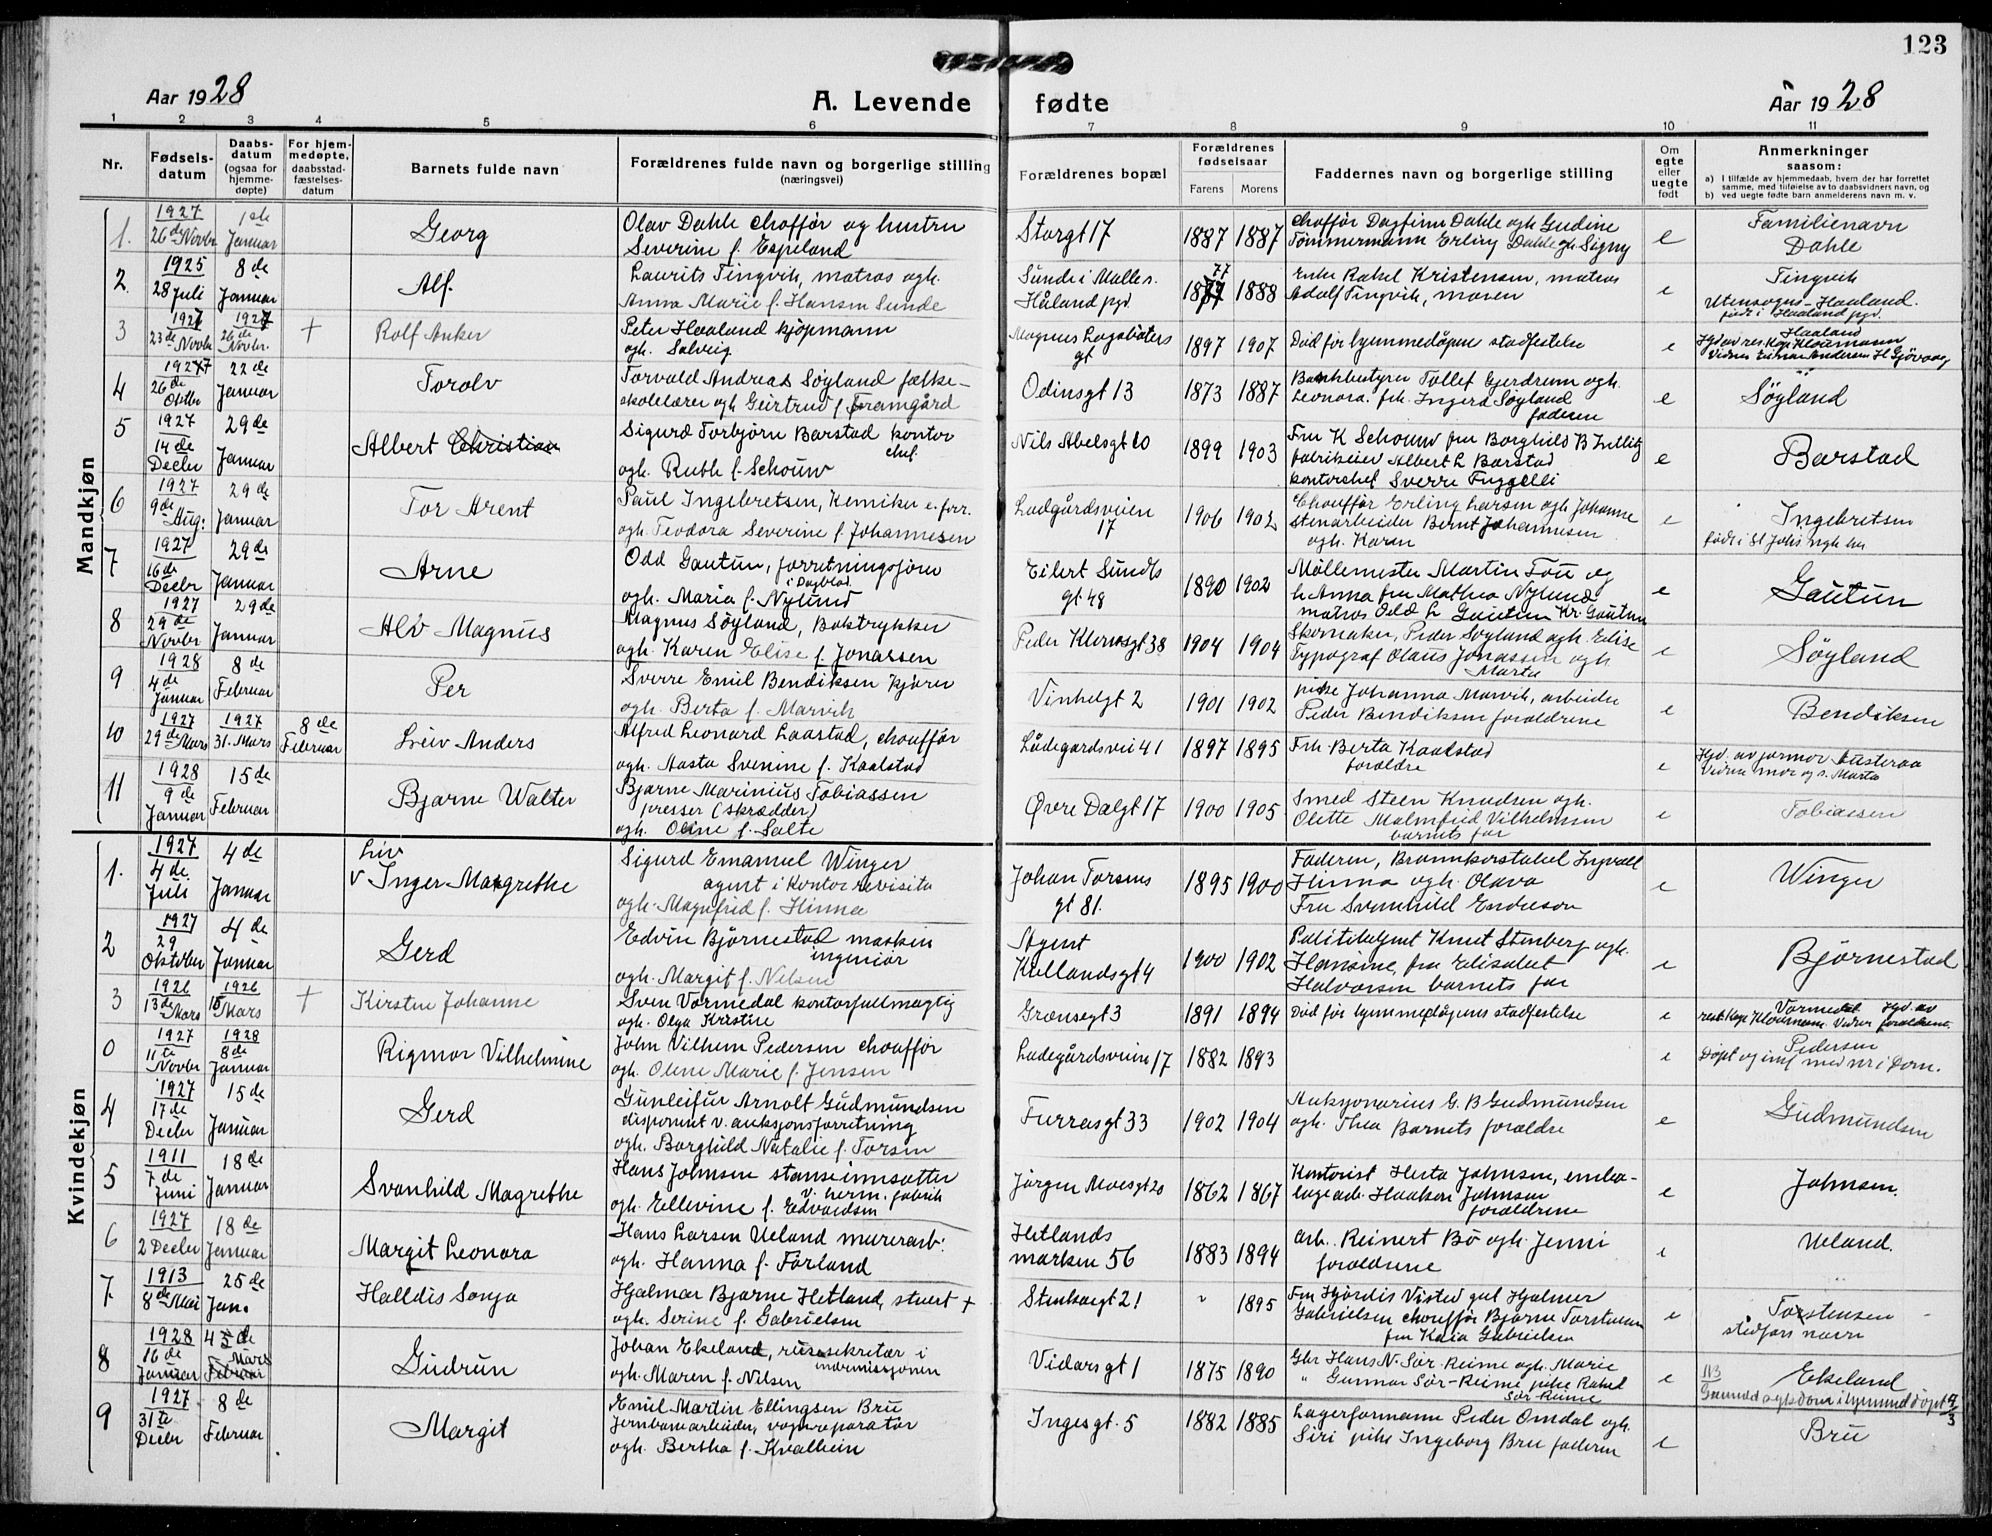 123
Aar 1928
A. Levende fødte
Aar 1928
1 2 3 4 5 6 7 8 9 10 11
Nr.
Fødsels-
datum
Daabs-
datum
(ogsaa for
hjemme-
døpte)
For hjem-
medøpte,
daabsstad-
fæstelses-
datum
Barnets fulde navn
Forældrenes fulde navn og borgerlige stilling
(næringsvei)
Forældrenes bopæl
Forældrenes
fødselsaar
Farens Morens
Faddernes navn og borgerlige stilling
Om
egte
eller
uegte
født
Anmerkninger
saasom:
a) I tilfælde av hjemmedaab, hvem der har forrettet
samme, med tilføielse av to daabsvidners navn, og
b) ved uegte fødte barn anmelderens navn m. v.
Mandkjøn
1. 1927 26de Novbr 1ste Januar Georg
Olav Dahle chofför og hustru
Severine f. Espeland
Storgt 17 1887 1887
Chofför Dagfinn Dahle ogh Gudine
Tömmermann Erling Dahle ogh Signy
e Familienavn
Dahle
2. 1925 28 Juli 8de Januar Alf.
Laurits Tingvik, matros ogh.
Anna Marie f. Hansen Sunde
Sunde i Malle s.
Håland pgd. 1877 1888
Enke Rakel Kristensen, matros
Adolf Tingvik, moren
e Tingvik
Utensogns - Haaland.
født i Haaland pgd.
3 1927 23de Novbr 1927 26de Novbr. + Rolf Anker
Peter Haaland kjøpmann
ogh. Solveig
Magnus Lagabøters
gt 1897 1907
Död för hjemmedåpens stadfestelse
e Haaland
Hjd av res. Kap Kloumann
4 1927 26de Oktbr 22de Januar Torolv
Torvald Andreas Söyland folke-
skolelærer ogh Geirtrud f. Framgård
Odinsgt 13 1873 1887
Bankbestyrer Tollef Gjerdrum ogh.
Leonora. frk. Ingerd Söyland
faderen
e Söyland
5 1927 14de Decbr 29de Januar Albert Christian
Sigurd Torbjörn Barstad kontor
chef
ogh. Ruth f. Schouw
Nils Abelsgt 20 1899 1903
Fru K Schouw fru Borghild B
fabrikeier Albert L Barstad
kontorchef Sverre Fuggelli
e Barstad
6 1927 9de Aug: 29de Januar Tor Arent
Paul Ingebretsen, Kemiker e. forr.
ogh. Teodora Severine f. Johannesen
Ladgårdsveien
17 1906 1902
Chofför Erling Larsen ogh Johanne
stenarbeider Bernt Johannesen
ogh. Karen
e Ingebretsen
7 1927 16de Decbr 29de Januar Arne
Odd Gautun, forretningsförer
i Dagblad.
ogh. Maria f. Nylund
Eilert Sundts
gt 48 1890 1902
Möllemester Martin Tou og
h Anna fru Mathea Nylund
matros Odd L Gautun Kr. Gautun
e Gautun
8 1927 29de Novbr 29de Januar Alv Magnus
Magnus Söyland, Boktrykker
ogh. Karen Elise f. Jonassen
Peder Klowsgt 38 1904 1904
Skomaker, Peder Söyland ogh. Elise
Typograf Olaus Jonassen ogh
Marta
e Söyland
9 1928 4de Januar 8de Februar Per
Sverre Emil Bendiksen kjörer
ogh. Berta f. Marvik
Vinkelgt 2 1901 1902
pike Johanna Marvik, arbeider
Peder Bendiksen foreldrene
e Bendiksen
10 1927 29de Mars 1927 31. Mars 8de Februar Leiv Anders
Alfred Leonard Laastad, chofför
ogh. Aasta Svenine f. Kaalstad
Lådegardsvei 41 1897 1895
Frk Berta Kaalstad
foreldre
e Hjd. av jormor
Vidner mor og s. Marta
11 1928 9de Januar 15de Februar Bjarne Walter
Bjarne Marinius Tobiassen
presser (skrædder)
ogh. Oline f. Salte
Øvre Dalgt 17 1900 1905
Smed Steen Knudsen ogh.
Olette Malmfrid Vilhelmsen
barnets far
e Tobiassen
Kvindekjøn
1. 1927 4de. Juli 4de Januar Liv
v Inger Margrethe
Sigurd Emanuel Winger
agent i kontorrevisita
ogh. Magnfrid f. Hinna
Johan Torsens
gt 81. 1895 1900
Faderen, Brannkorstabel Ingvall
Hinna ogh. Olava
Fru Svanhild Endresen
e Winger
2 1927 29 Oktober 4de Januar Gerd
Edvin Bjørnestad maskin
ingeniør
ogh. Margit f. Nilsen
Agent
Kiellandsgt 4 1900 1902
Politibetjent Knut Stenberg ogh.
Hansine, fru Elisabet
Halvorsen barnets far
e Bjørnestad
3 1926 13de Mars 1926 15 Mars + Kirsten Johanne
Sven Vormedal kontorfullmægtig
ogh. Olga Kristine
Grensegt 3 1891 1894
Död för hjemmedåpens stadfestelse
e Vormedal Hjd. av
res. Kap Kloumann Vidner foreldrene.
0 1927 11te Novbr 1928 8de Januar Rigmor Vilhelmine
John Vilhem Pedersen chofför
ogh. Olene Marie f. Jensen
Ladegårdsveien 17 1882 1893
e Pedersen
Døpt og inf med nr i Dom.
4 1927 17de Decbr 15de Januar Gerd
Gunleifur Arnolt Gudmundsen
disponent v. auksjonsforretning
ogh. Borghild Natalie f. Torsen
Furrasgt 33 1902 1904
Auksjonarius G. B Gudmundsen
ogh. Thea Barnets foreldre
e Gudmundsen
5 1911 7de Juni 18de Januar Svanhild Magrethe
Hans Johnsen stanseinnsetter
v. herm. fabrik
ogh. Ellevine f. Edvardsen
Jörgen Moesgt 20 1862 1867
Kontorist Herta Johnsen, embal-
lagearb. Haakon Johnsen
foreldrene
e Johnsen.
6 1927 2 Decbr 18de Januar Margit Leonora
Hans Larsen Ueland murerarb.
ogh. Hanna f. Förland
Hetlands
marken 56 1883 1894
Arb. Reinert Bö ogh. Jenni
foreldrene
e Ueland.
7. 1913 8de Mai 25de Jan. Halldis Sonja
Hjalmar Bjarne Hetland, stuert +
ogh. Serine f. Gabrielsen
Stenkargt 21 " 1895
Fru Hjördis Visted gul Hjalmer
Gabrielsen chofför Bjarne Torstensen
fru Kaia Gabrielsen
e Torstensen
stedfars navn
8 1928 16de Januar 4de Mars Februar Gudrun
Johan Ekeland, reisesekretær i
indremissjonen
ogh. Maren f. Nilsen
Vidarsgt 1 1875 1890
Gbr Hans N. Sör-Reime ogh. Marie
" Gunnar Sör-Reime pike Rakel
Sör-Reime
e 113 Ekeland
9 1927 31te Decbr 8de Februar Margit
Emil Martin Ellingsen Bru
Jernbanearbeider, vognreparatør
ogh. Bertha f. Kvalhein
Ingesgt. 5 1882 1885
Lagerformann Peder Omdal ogh.
Siri pike Ingeborg Bru faderen
e Bru